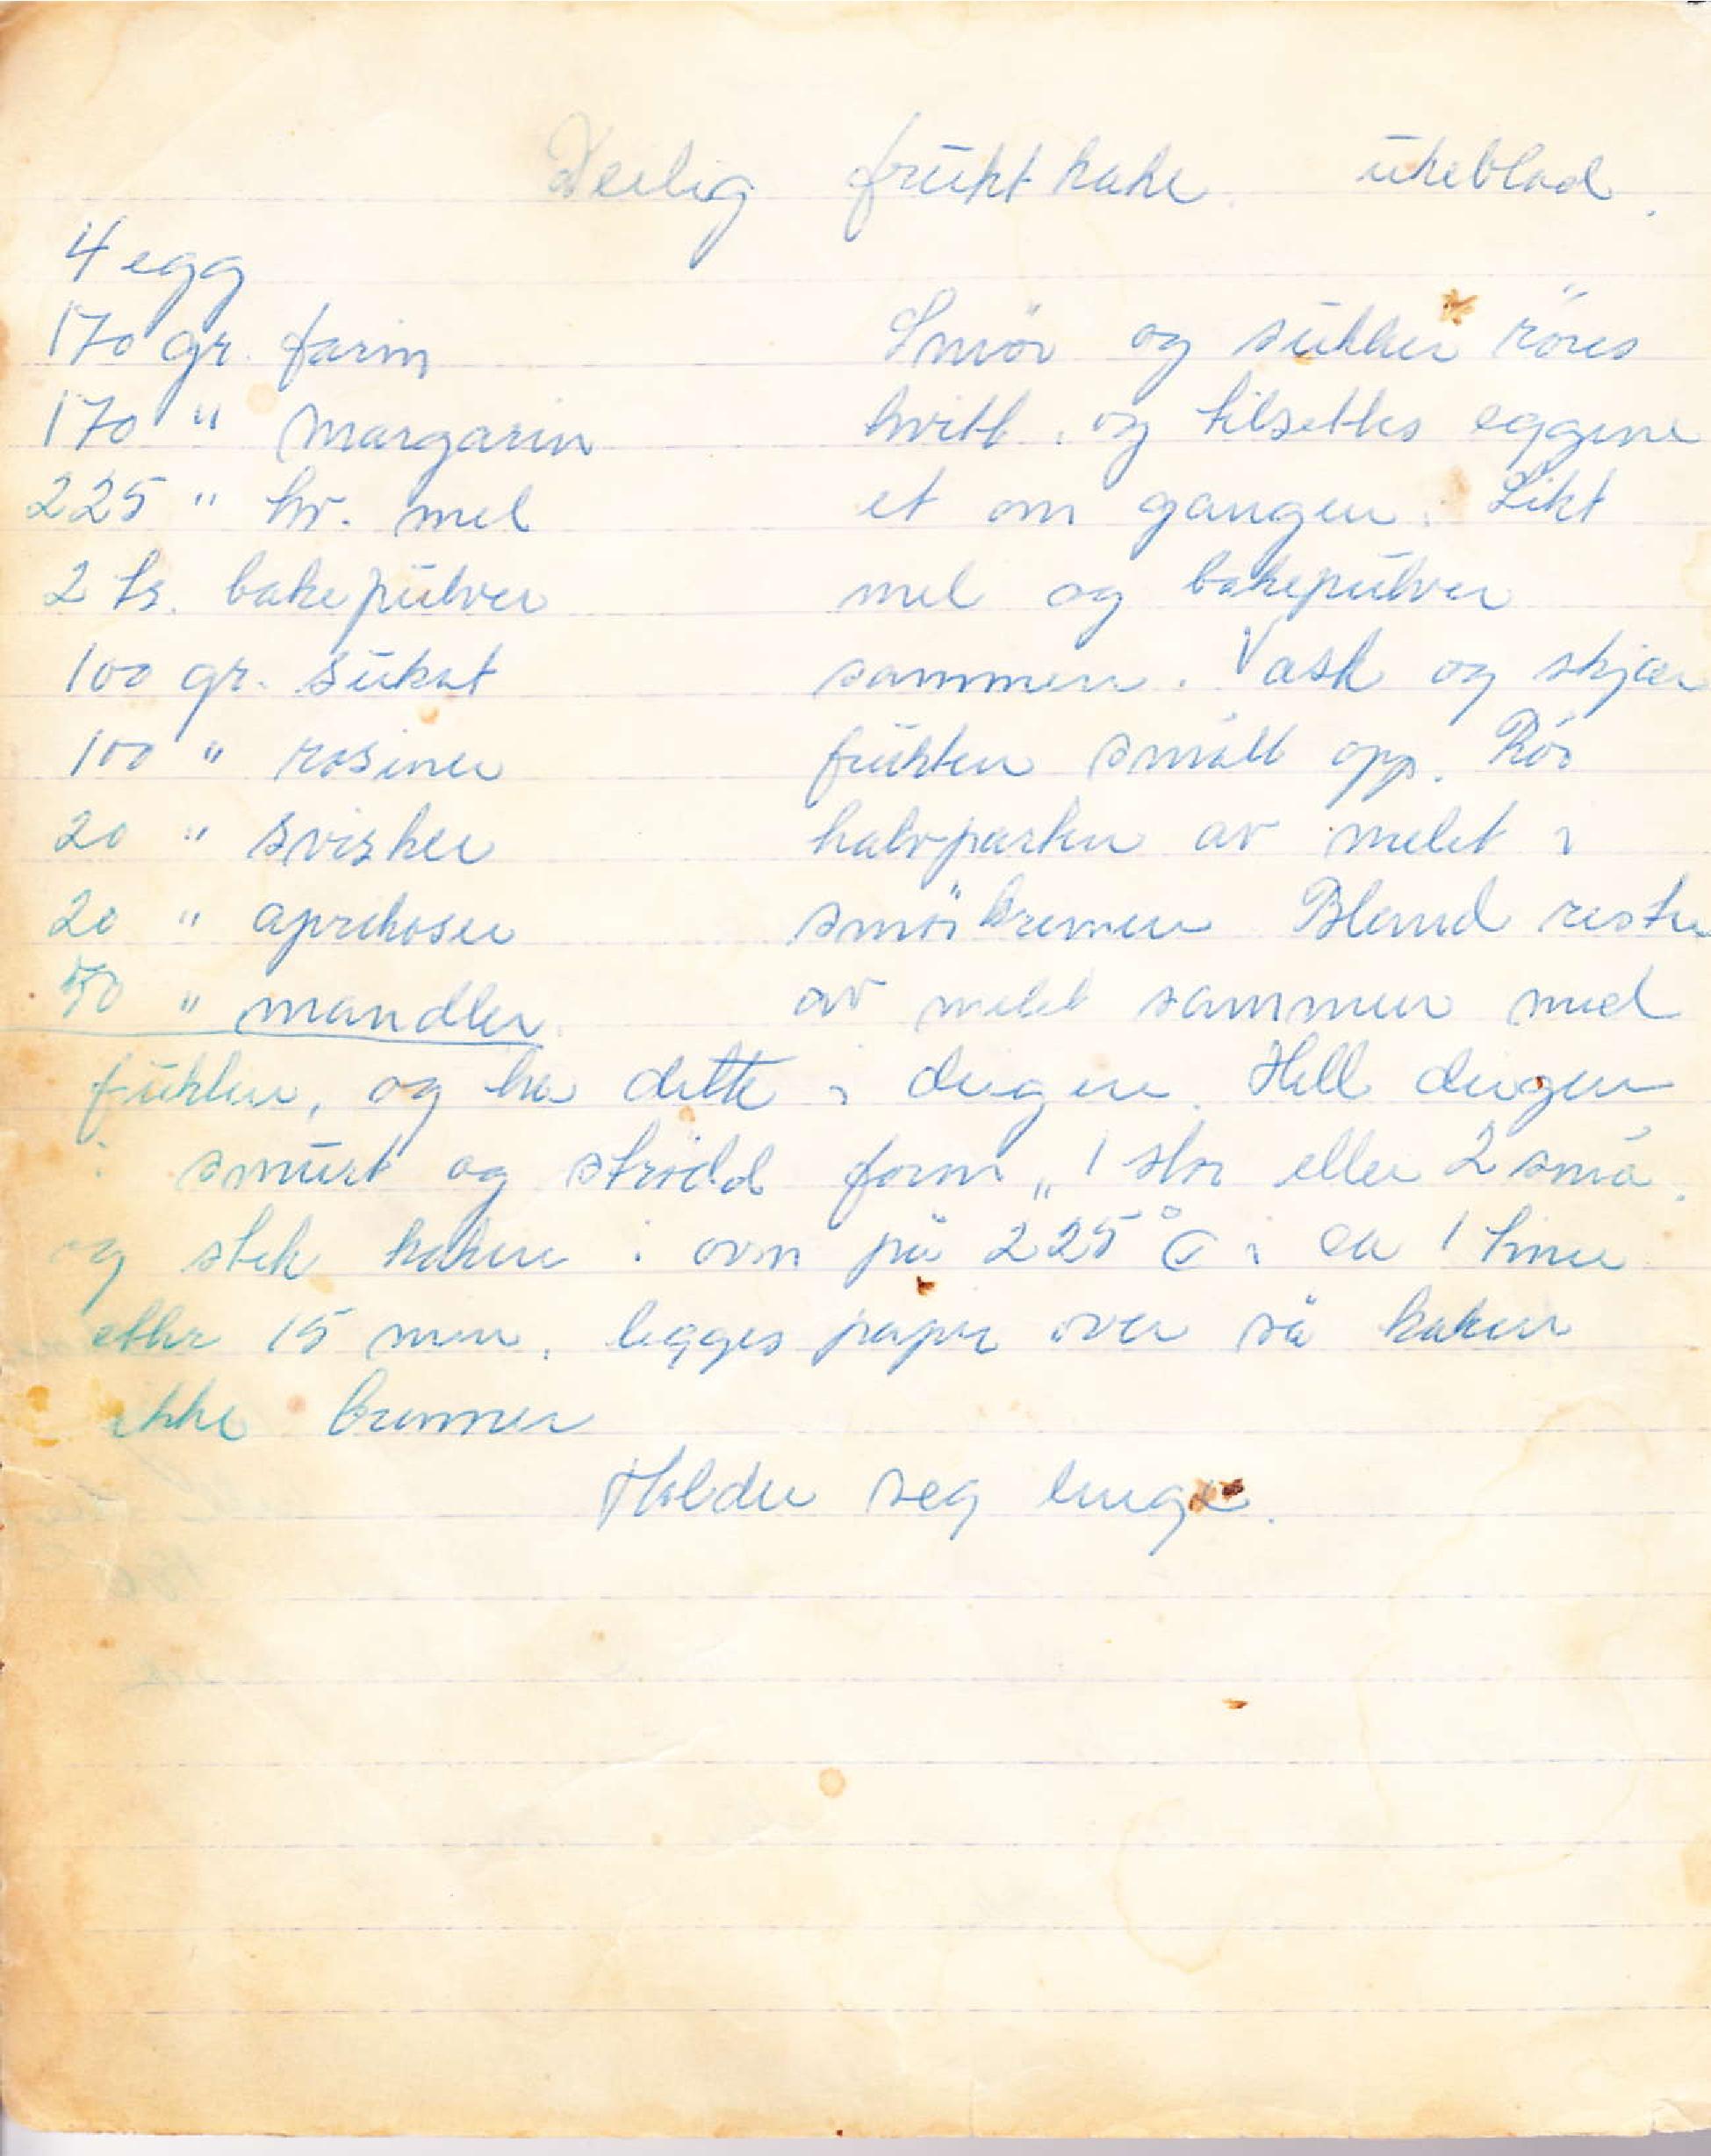 Deilig fruktkake. ukeblad.
4 egg
170 gr. farin
170 " margarin
225 " hv. mel
2 ts. bakepulver
100 gr. sukat
100 " rosiner
20 " svisker
20 " aprikoser
" mandler.
Smör og sukker röres
hvitt, og tilsettes eggene
et om gangen. Sikt
mel og bakepulver
sammen. Vask og skjær
frukten smått opp. Rör
halvparten av melet i
smörkremen Bland resten
av melet sammen med
frukten, og ha dette i deigen. Hell deigen
i smurt og strödd form, 1 stor eller 2 små.
og stek kaken i ovn på 225° C i ca 1 time
etter 15 min. legges papir over så kaken
ikke brenner
Holder seg lenge.